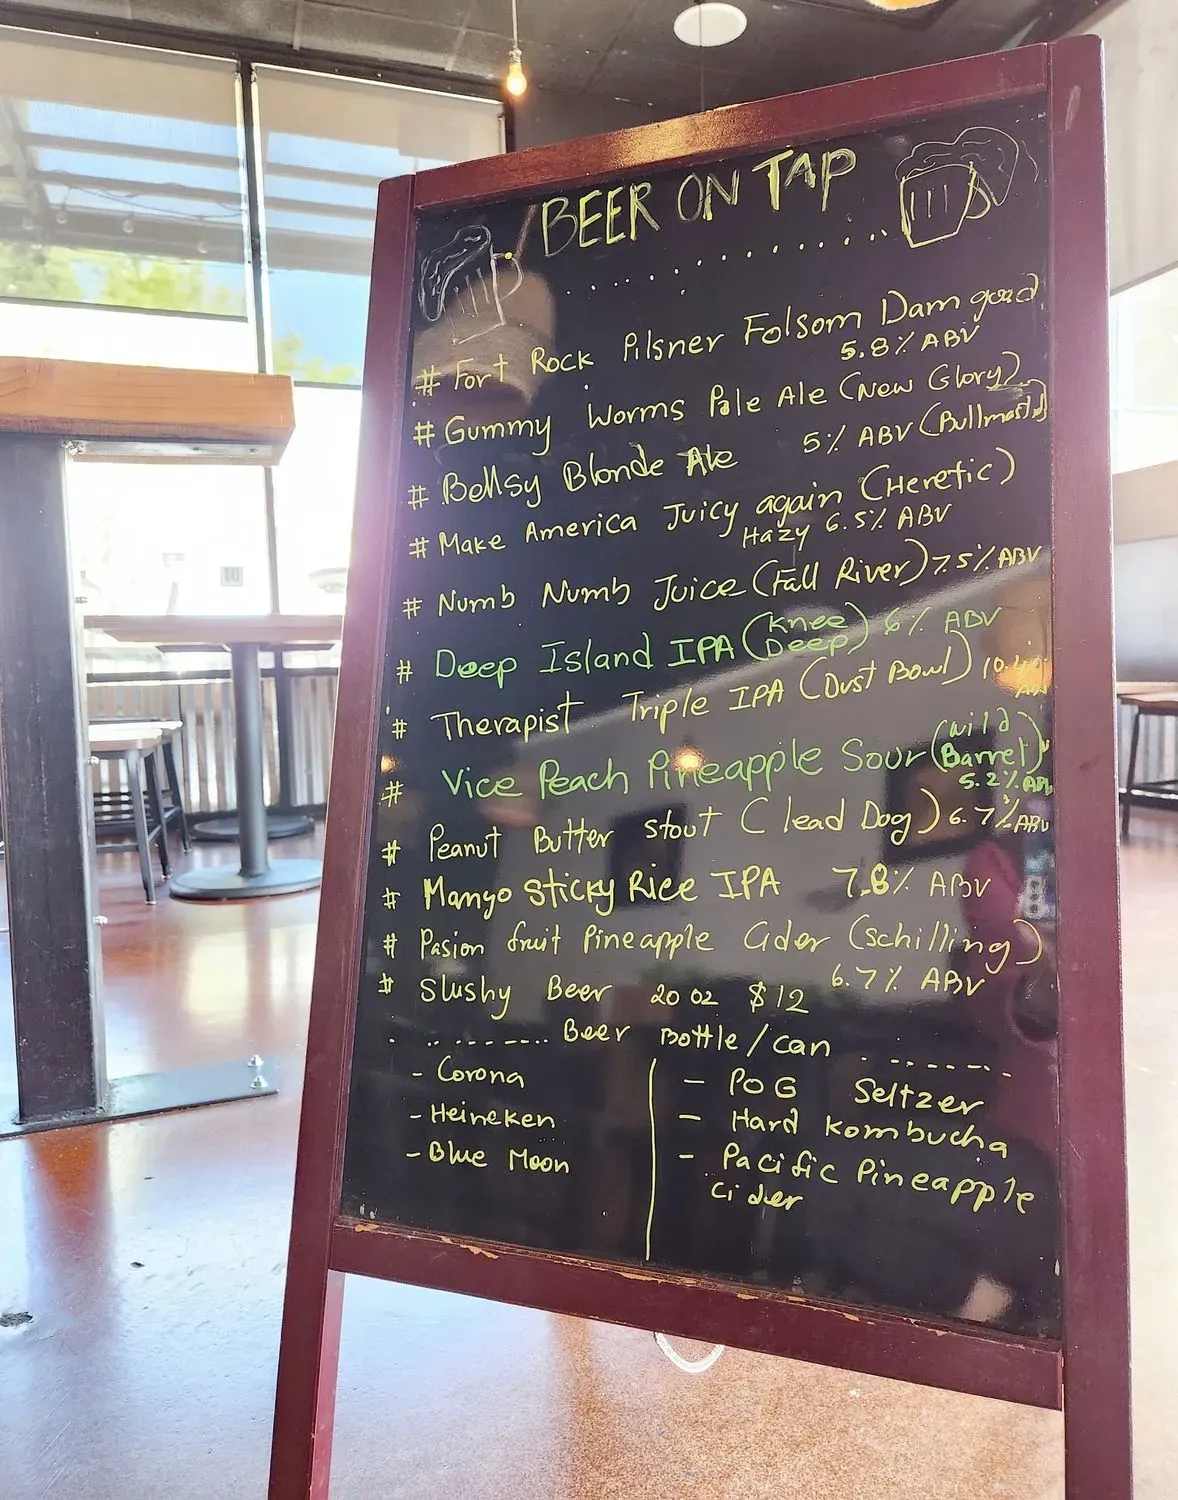 BEER ON TAP
# Fort Rock Pilsner Folsom Dam good
5.8% ABV
# Gummy Worms Pale Ale (New Glory)
# Bellsy Blonde Ale 5% ABV (Bullmastif)
# Make America Juicy again (Heretic)
Hazy 6.5% ABV
# Numb Numb Juice (Fall River) 7.5% ABV
# Deep Island IPA (Knee Deep) 6% ABV
# Therapist Triple IPA (Dust Bowl)
# Vice Peach Pineapple Sour (Wild Barrel)
5.2% ABV
# Peanut Butter stout (lead Dog) 6.7% ABV
# Mango Sticky Rice IPA 7.8% ABV
# Pasion fruit Pineapple Cider (Schilling)
6.7% ABV
# Slushy Beer 20 oz $12
Beer Bottle/can
- Corona
- Heineken
- Blue Moon
- POG Seltzer
- Hard kombucha
- Pacific Pineapple
Cider